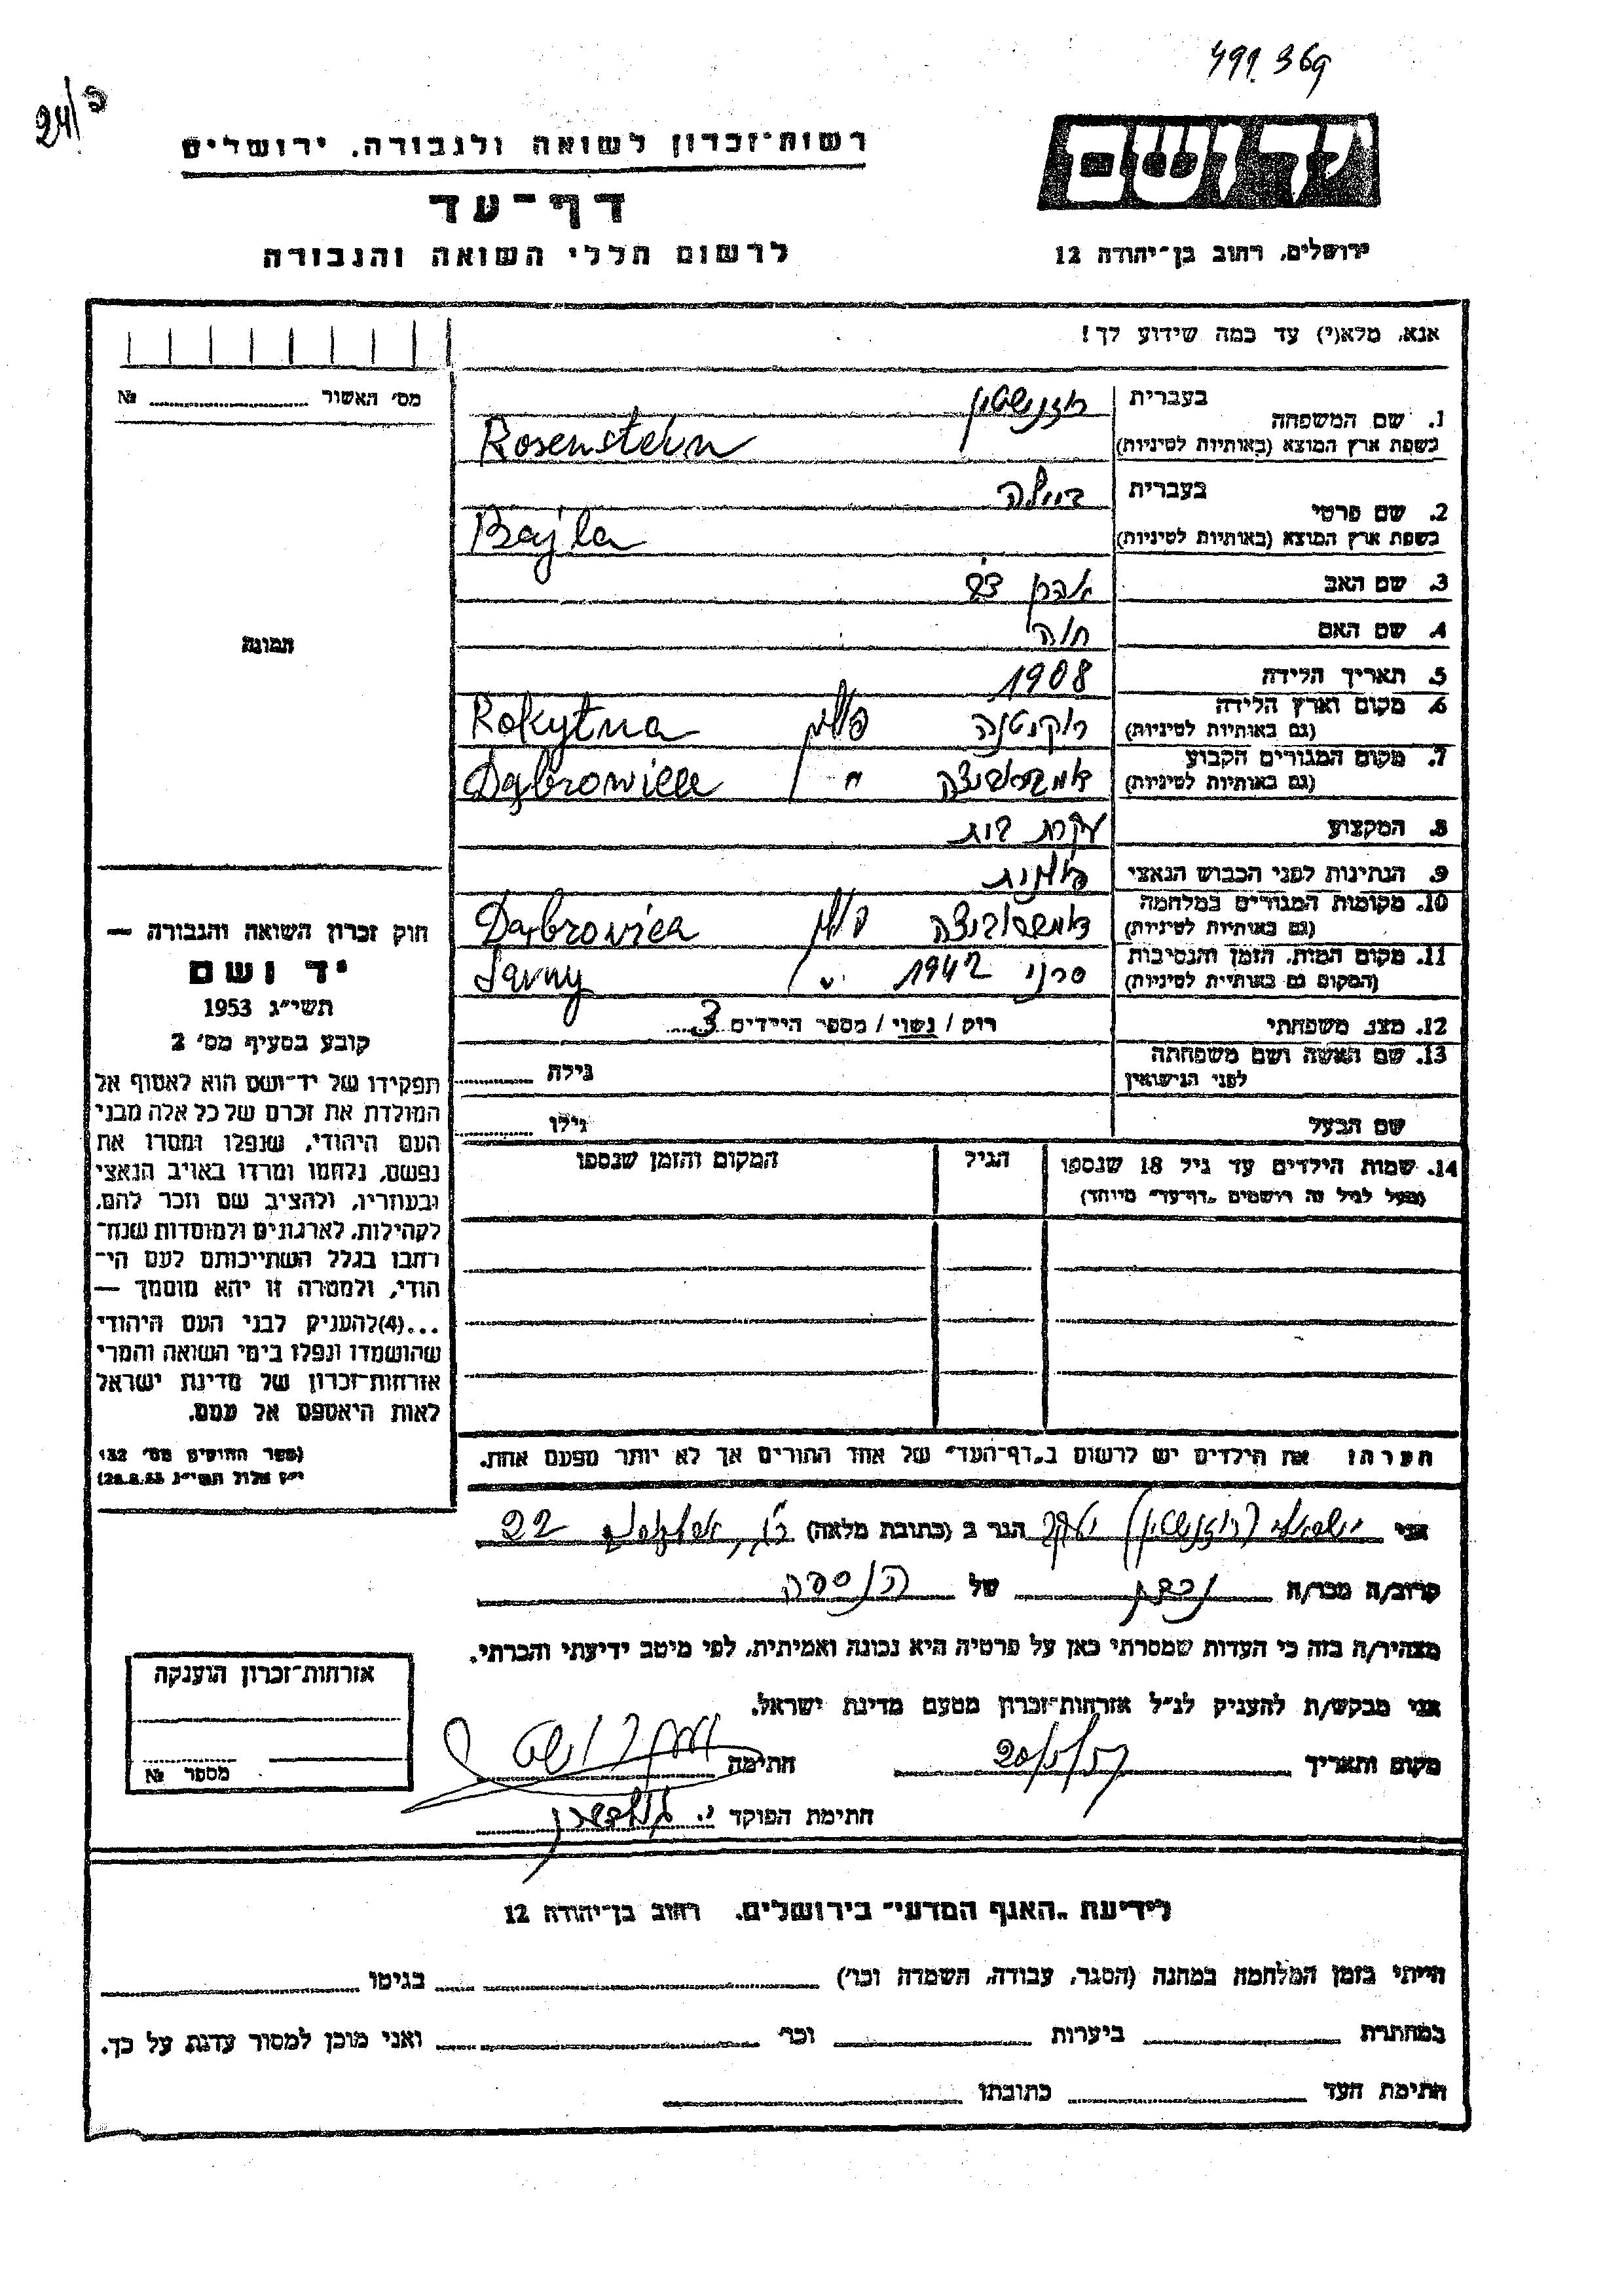 499.369
24/פ
רשות־זכרון לשואה ולגבורה, ירושלים
יד ושם
דף־עד
לרשום חללי השואה והגבורה
ירושלים, רחוב בן־יהודה 12
אנא, מלא(י) עד כמה שידוע לך!
מס׳ האשור № 
1. שם המשפחה
בעברית רוזנשטיין
בשפת ארץ המוצא (באותיות לטיניות) Rosenstein
2. שם פרטי
בעברית ביילה
בשפת ארץ המוצא (באותיות לטיניות) Bajla
3. שם האב אהרן
4. שם האם חוה
תמונה
5. תאריך הלידה 1908
6. מקום וארץ הלידה
(גם באותיות לטיניות) רוקיטנה פולין Rokytna
7. מקום המגורים הקבוע
(גם באותיות לטיניות) דומברוביצה " Dąbrowica
8. המקצוע עקרת בית
9. הנתינות לפני הכבוש הנאצי פולנית
10. מקומות המגורים במלחמה
(גם באותיות לטיניות) דומברוביצה פולין Dąbrowica
11. מקום המות, הזמן והנסיבות
(המקום גם באותיות לטיניות) סרני 1942 Sarny
12. מצב משפחתי רוק / נשוי / מספר הילדים 3
13. שם האשה ושם משפחתה
לפני הנישואין גילה
שם הבעל גילו
14. שמות הילדים עד גיל 18 שנספו הגיל המקום והזמן שנספו
(מעל לגיל זה רושמים „דף־עד״ מיוחד)
הערה: את הילדים יש לרשום ב„דף־העד״ של אחד ההורים אך לא יותר מפעם אחת.
חוק זכרון השואה והגבורה —
יד ושם
תשי״ג 1953
קובע בסעיף מס׳ 2
תפקידו של יד־ושם הוא לאסוף אל
המולדת את זכרם של כל אלה מבני
העם היהודי, שנפלו ומסרו את
נפשם, נלחמו ומרדו באויב הנאצי
ובעוזריו, ולהציב שם וזכר להם,
לקהילות, לארגונים ולמוסדות שנח־
רבו בגלל השתייכותם לעם הי־
הודי, ולמטרה זו יהא מוסמך —
...(4) להעניק לבני העם היהודי
שהושמדו ונפלו בימי השואה והמרי
אזרחות־זכרון של מדינת ישראל
לאות היאספם אל עמם.
(ספר החוקים מס׳ 132
י״ז אלול תשי״ג 28.8.53)
אני ישראלי (רוזנשטיין) יעקב הגר ב (כתובת מלאה) 22
קרוב/ה מכר/ה נכדן של הנספה
מצהיר/ה בזה כי העדות שמסרתי כאן על פרטיה היא נכונה ואמיתית, לפי מיטב ידיעתי והכרתי.
אני מבקש/ת להעניק לנ״ל אזרחות־זכרון מטעם מדינת ישראל.
מקום ותאריך 20/5/57 חתימה
חתימת הפוקד
אזרחות־זכרון הוענקה
מספר №
לידיעת „האגף המדעי״ בירושלים, רחוב בן־יהודה 12
הייתי בזמן המלחמה במחנה (הסגר, עבודה, השמדה וכו׳) בגיטו
במחתרת ביערות וכו׳ ואני מוכן למסור עדות על כך.
חתימת העד כתובתו